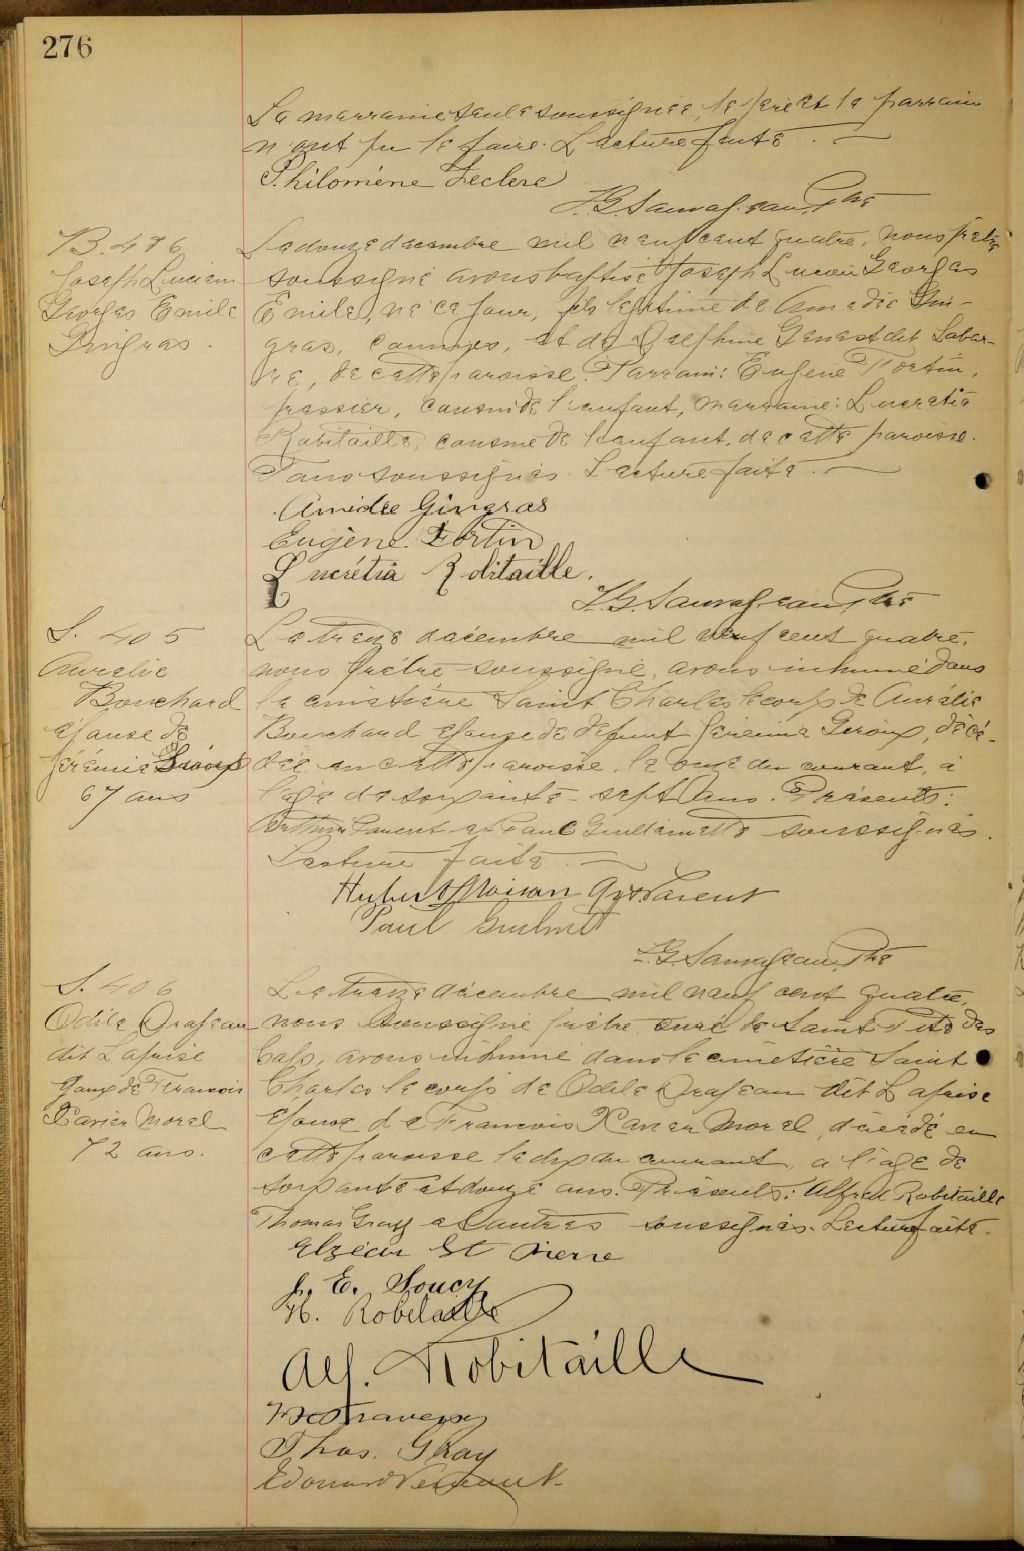 276
La marraine seule soussignée, le père et le parrain
n'ont pu le faire. Lecture faite.
Philomène Leclerc
F. G. Sauvageau, Ptre
B. 476
Joseph Lucien
Georges Emile
Gingras.
Le douze décembre mil neuf cent quatre, nous prêtre
soussigné avons baptisé Joseph Lucien Georges
Emile, né ce jour, fils légitime de Amédée Gin-
gras, commis, et de Delphine Genest dit Labar-
re, de cette paroisse. Parrain: Eugène Fortin,
pressier, cousin de l'enfant, marraine: Lucretia
Robitaille, cousine de l'enfant, de cette paroisse.
Tous soussignés. Lecture faite.
Amédée Gingras
Eugène Fortin
Lucrétia Robitaille.
F. G. Sauvageau, Ptre
S. 405
Aurélie
Bouchard
épouse de
Jérémie Giroux
67 ans
Le treize décembre mil neuf cent quatre,
nous prêtre soussigné, avons inhumé dans
le cimetière Saint Charles le corps de Aurélie
Bouchard épouse de défunt Jérémie Giroux, décé-
dée en cette paroisse, le onze du courant, à
l'âge de soixante-sept ans. Présents:
Arthur Parent et Paul Guillemette soussignés.
Lecture faite.
Hubert Moisan Parent
Paul
F. G. Sauvageau, Ptre
S. 406
Odile Drapeau
dit Lafrise
épouse de Francois
Xavier Morel
72 ans.
Le treize décembre mil neuf cent quatre,
nous soussigné prêtre curé de Saint Tite des
Caps, avons inhumé dans le cimetière Saint
Charles le corps de Odile Drapeau dit Lafrise
épouse de Francois Xavier Morel, décédé en
cette paroisse le dix du courant, a l'âge de
soixante et douze ans. Présents: Alfred Robitaille
Thomas Gray et autres soussignés. Lecture faite.
Elzéar St Pierre
E. Soucy
H. Robitaille
Alf. Robitaille
Thos. Gray
Edouard